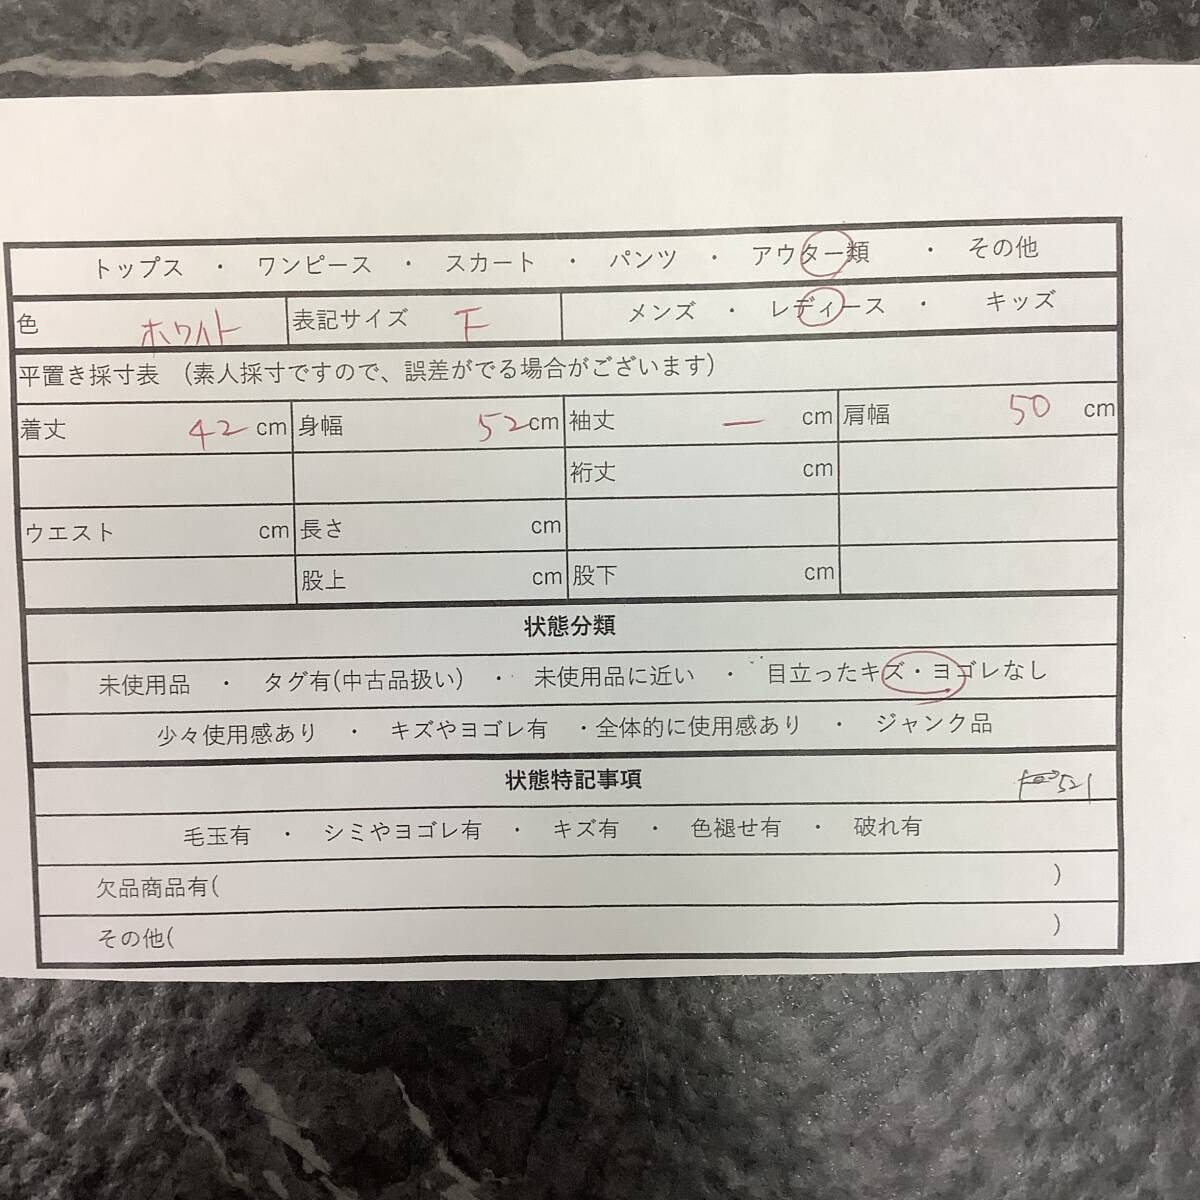 トップス ・ ワンピース ・ スカート ・ パンツ ・ アウター類 ・ その他
色 ホワイト 表記サイズ F メンズ ・ レディース ・ キッズ
平置き採寸表 (素人採寸ですので、誤差がでる場合がございます)
着丈 42 cm 身幅 52 cm 袖丈 — cm 肩幅 50 cm
裄丈 cm
ウエスト cm 長さ cm
股上 cm 股下 cm
状態分類
未使用品 ・ タグ有(中古品扱い) ・ 未使用品に近い ・ 目立ったキズ・ヨゴレなし
少々使用感あり ・ キズやヨゴレ有 ・全体的に使用感あり ・ ジャンク品
状態特記事項
毛玉有 ・ シミやヨゴレ有 ・ キズ有 ・ 色褪せ有 ・ 破れ有
欠品商品有( )
その他( )